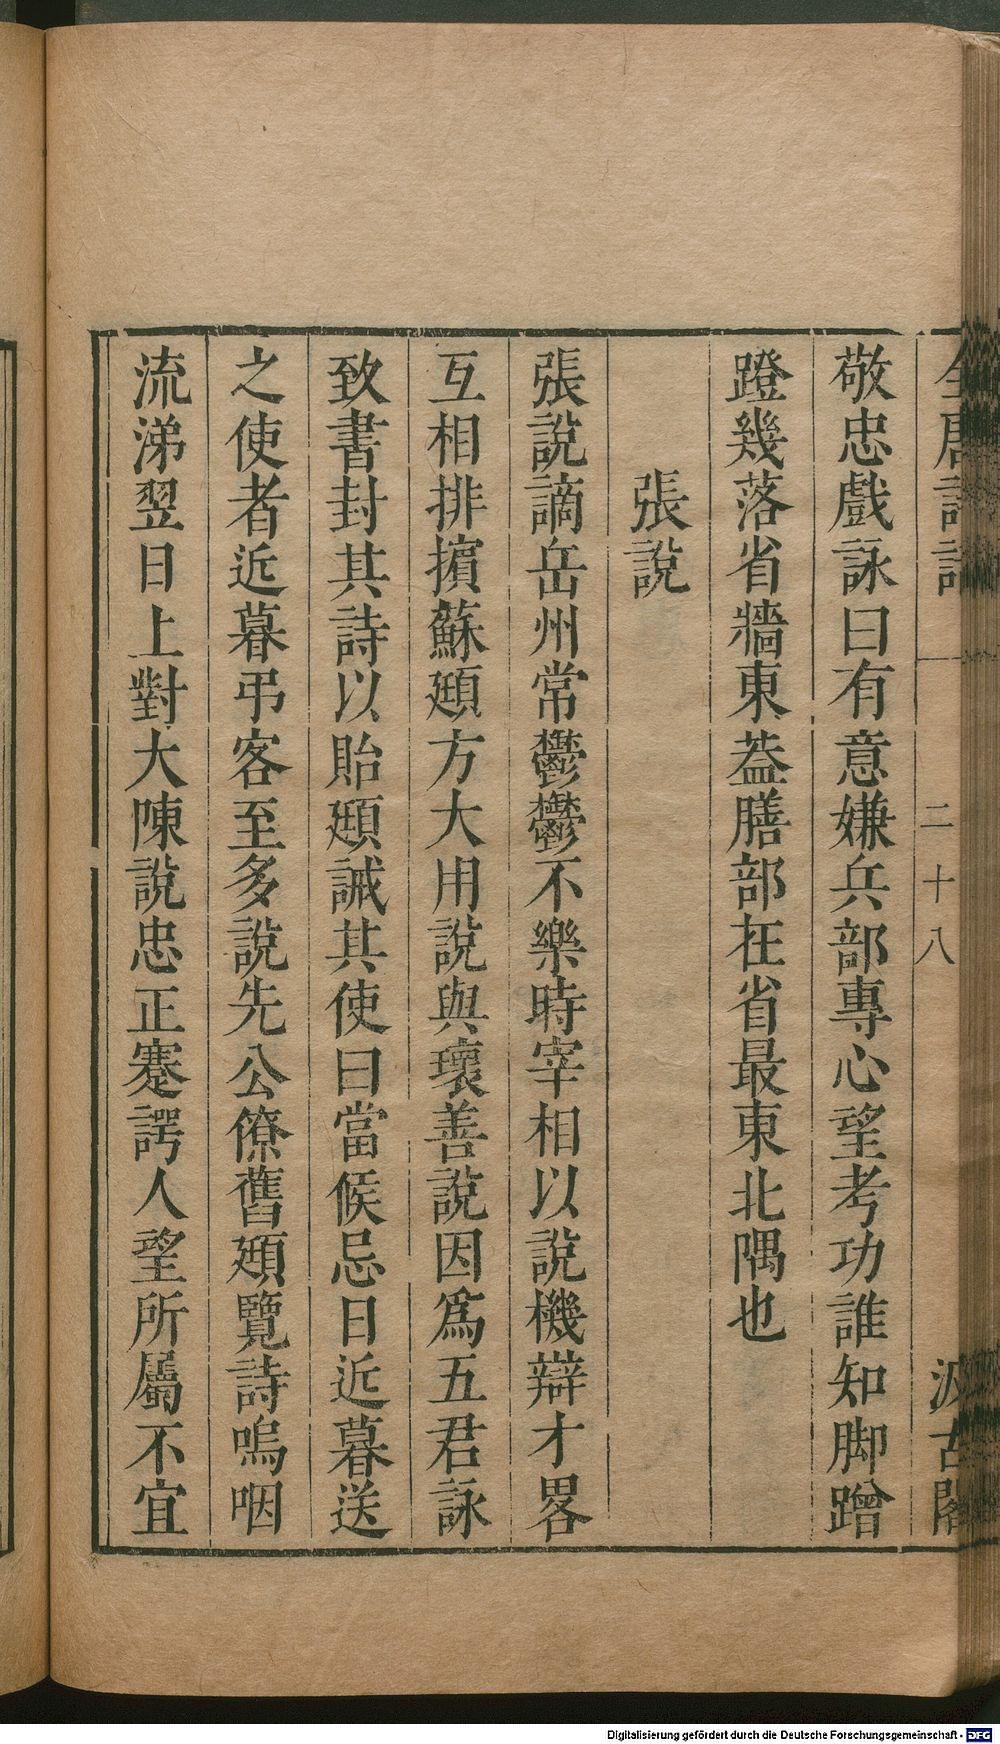 全唐詩話 二十八 汲古閣
敬忠戲詠曰有意嫌兵部專心望考功誰知脚蹭
蹬幾落省牆東葢膳部在省最東北隅也
張說
張說謫岳州常鬱鬱不樂時宰相以說機辯才畧
互相排擯蘇頲方大用說與瓌善說因爲五君詠
致書封其詩以貽頲誡其使曰當候忌日近暮送
之使者近暮弔客至多說先公僚舊頲覽詩嗚咽
流涕翌日上對大陳說忠正蹇諤人望所屬不宜
Digitalisierung gefördert durch die Deutsche Forschungsgemeinschaft - DFG